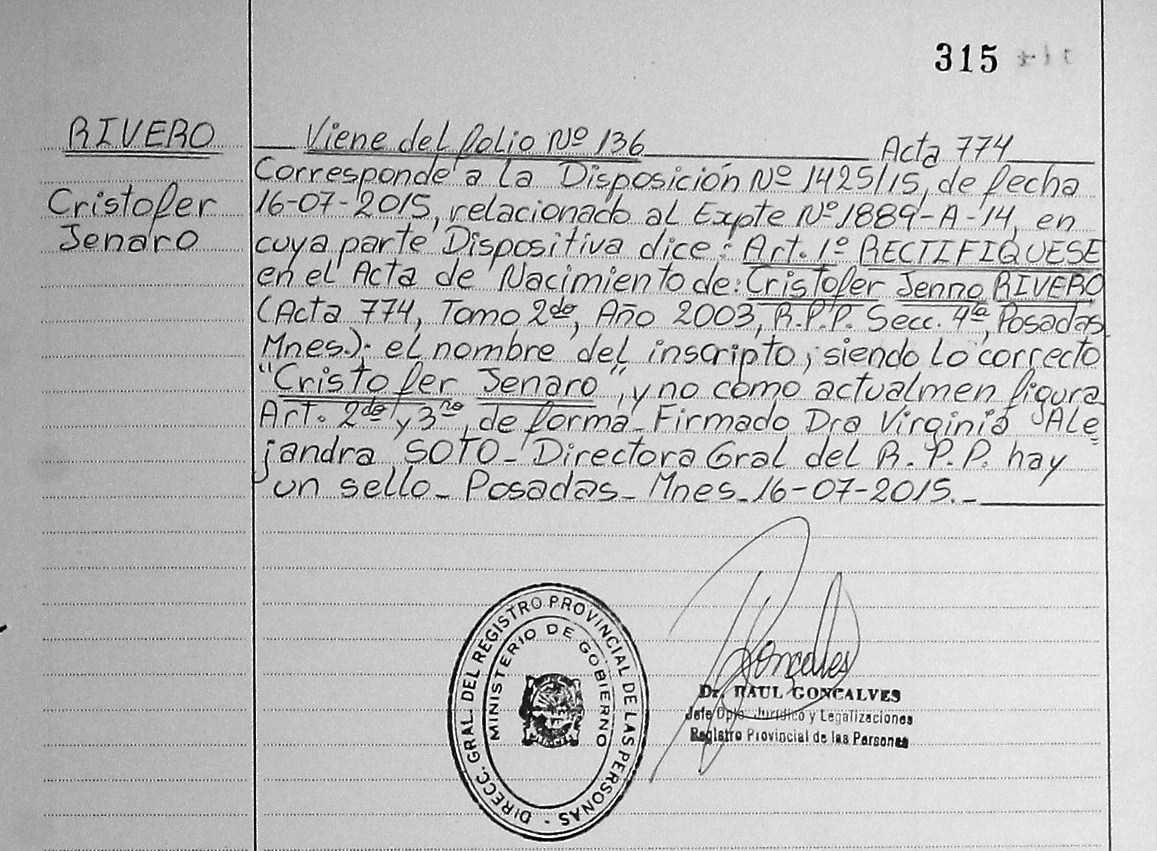 315
RIVERO
Cristofer
Jenaro
Viene del folio Nº 136 Acta 774
Corresponde a la Disposición Nº 1425/15, de fecha
16-07-2015, relacionado al Expte Nº 1889-A-14, en
cuya parte Dispositiva dice: Art. 1º RECTIFIQUESE
en el Acta de Nacimiento de: Cristofer Jenno RIVERO
(Acta 774, Tomo 2do, Año 2003, R.P.P. Secc. 4ª, Posadas
Mnes.): el nombre del inscripto, siendo lo correcto
"Cristofer Jenaro", y no como actualmen figura
Art. 2do y 3ro, de forma_ Firmado Dra Virginia Ale
jandra SOTO_ Directora Gral del R.P.P. hay
un sello_ Posadas_ Mnes_16-07-2015._
DIRECC. GRAL. DEL REGISTRO PROVINCIAL DE LAS PERSONAS -
MINISTERIO DE GOBIERNO
Goncalves
Dr. RAUL GONCALVES
Jefe Dpto. Jurídico y Legalizaciones
Registro Provincial de las Personas